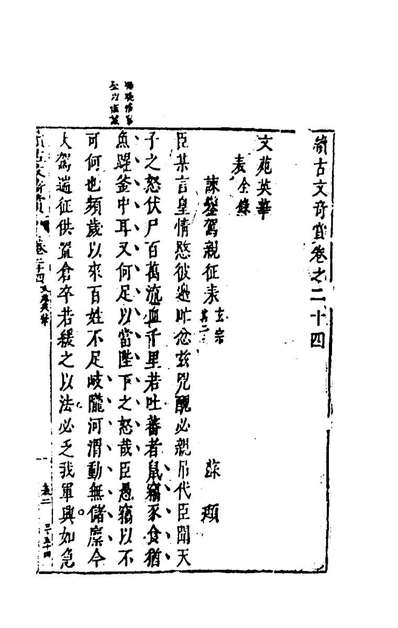 續古文奇賞卷之二十四
文苑英華
表全錄
諫鑾駕親征表玄宗其二 蘇頲
臣某言皇情愍彼邊氓忿兹兇醜必親吊伐臣聞天
子之怒伏尸百萬流血千里若吐蕃者鼠竊豕食猶
魚躍釜中耳又何足以當陛下之怒哉臣愚竊以不
可何也頻歲以來百姓不足岐隴河渭動無儲廩今
大駕遄征供貲倉卒若緩之以法必乏我軍興如急